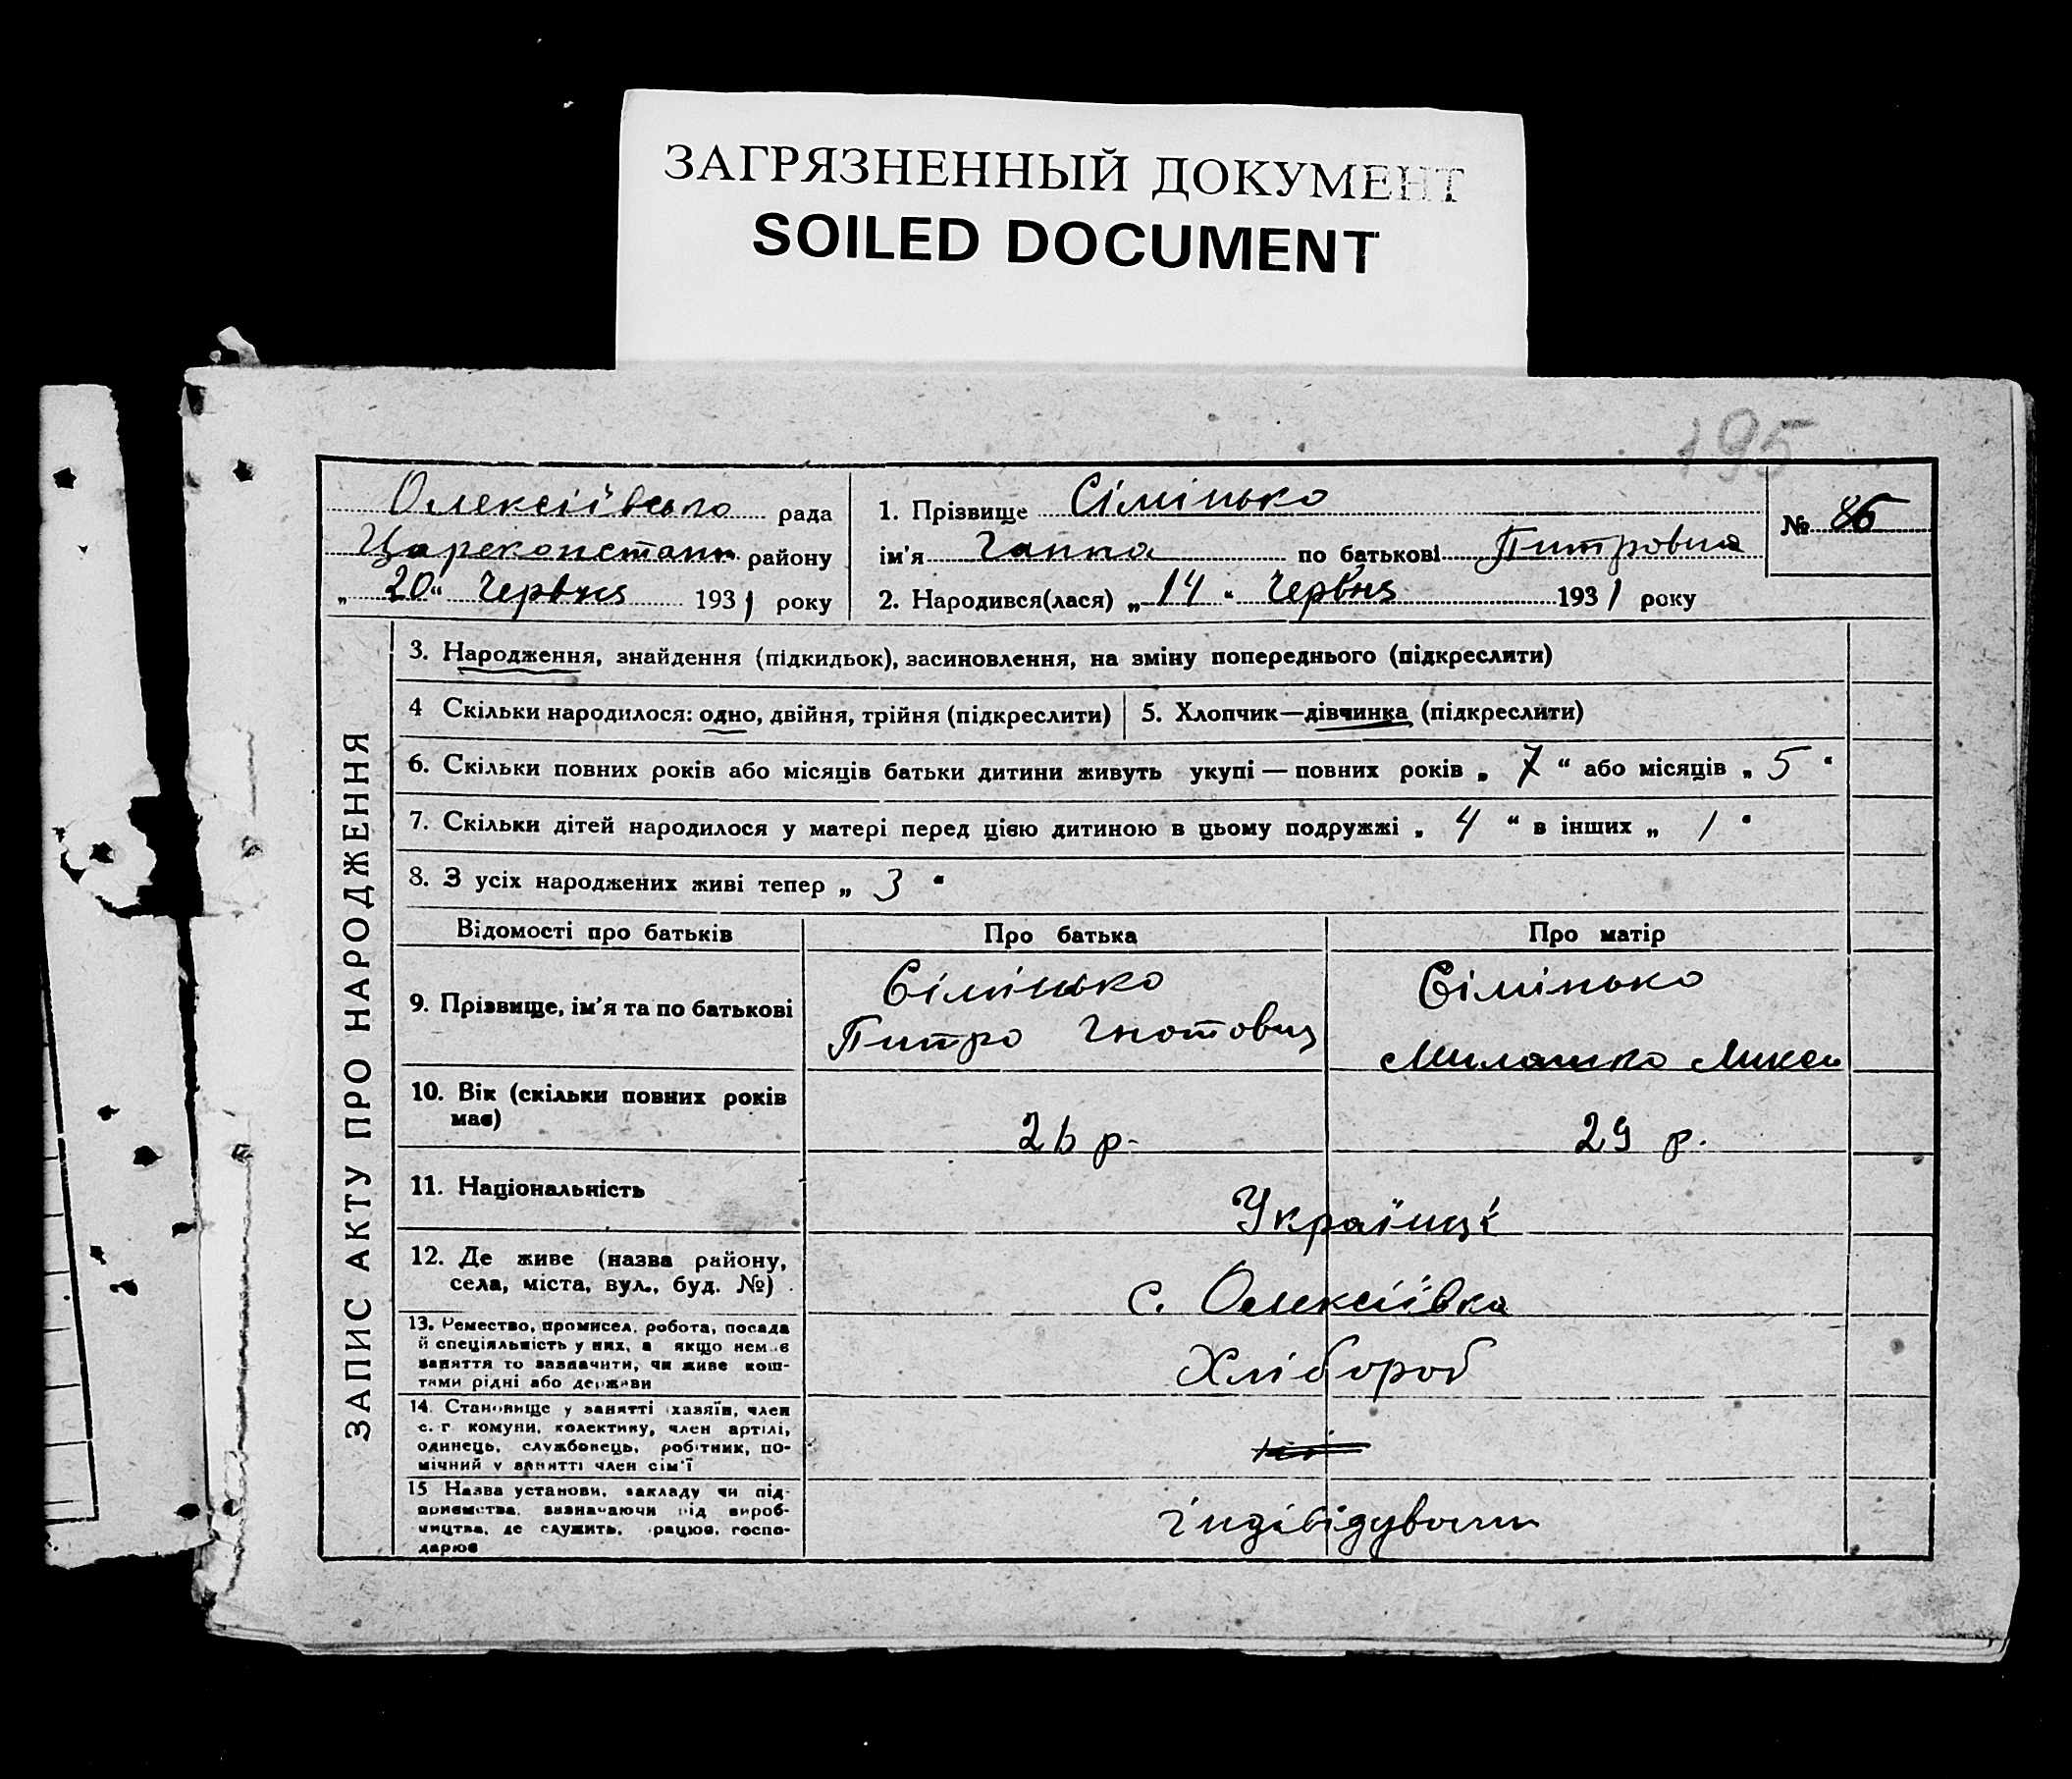 ЗАГРЯЗНЕННЫЙ ДОКУМЕНТ
SOILED DOCUMENT
195
Олексіївсько рада
Цареконстант району
„ 20 “ Червня 1931 року
1. Прізвище Сімінько
ім'я Ганна по батькові Питровна
2. Народився(лася) „ 14 “ Червня 1931 року
№ 86
ЗАПИС АКТУ ПРО НАРОДЖЕННЯ
3. Народження, знайдення (підкидьок), засиновлення, на зміну попереднього (підкреслити)
4 Скільки народилося: одно, двійня, трійня (підкреслити)
5. Хлопчик—дівчинка (підкреслити)
6. Скільки повних років або місяців батьки дитини живуть укупі — повних років „ 7 “ або місяців „ 5 “
7. Скільки дітей народилося у матері перед цією дитиною в цьому подружжі „ 4 “ в інших „ 1 “
8. З усіх народжених живі тепер „ 3 “
Відомості про батьків
Про батька
Про матір
9. Прізвище, ім'я та по батькові
Сімінько
Питро Гнотович
Сімінько
Милашко
10. Вік (скільки повних років
має)
26 р.
29 р.
11. Національність
Українці
12. Де живе (назва району,
села, міста, вул., буд. №)
с. Олексіївка
13. Ремество, промисел, робота, посада
й спеціяльність у них, а якщо немає
заняття то зазначити, чи живе кош-
тами рідні або держави
Хлібороб
14. Становище у занятті хазяїн, член
с. г комуни, колективу, член артілі,
одинець, службовець, робітник, по-
мічний у занятті член сім'ї
15 Назва установи, закладу чи під-
приємства, зазначаючи рід вироб-
ництва, де служить, працює, госпо-
дарює